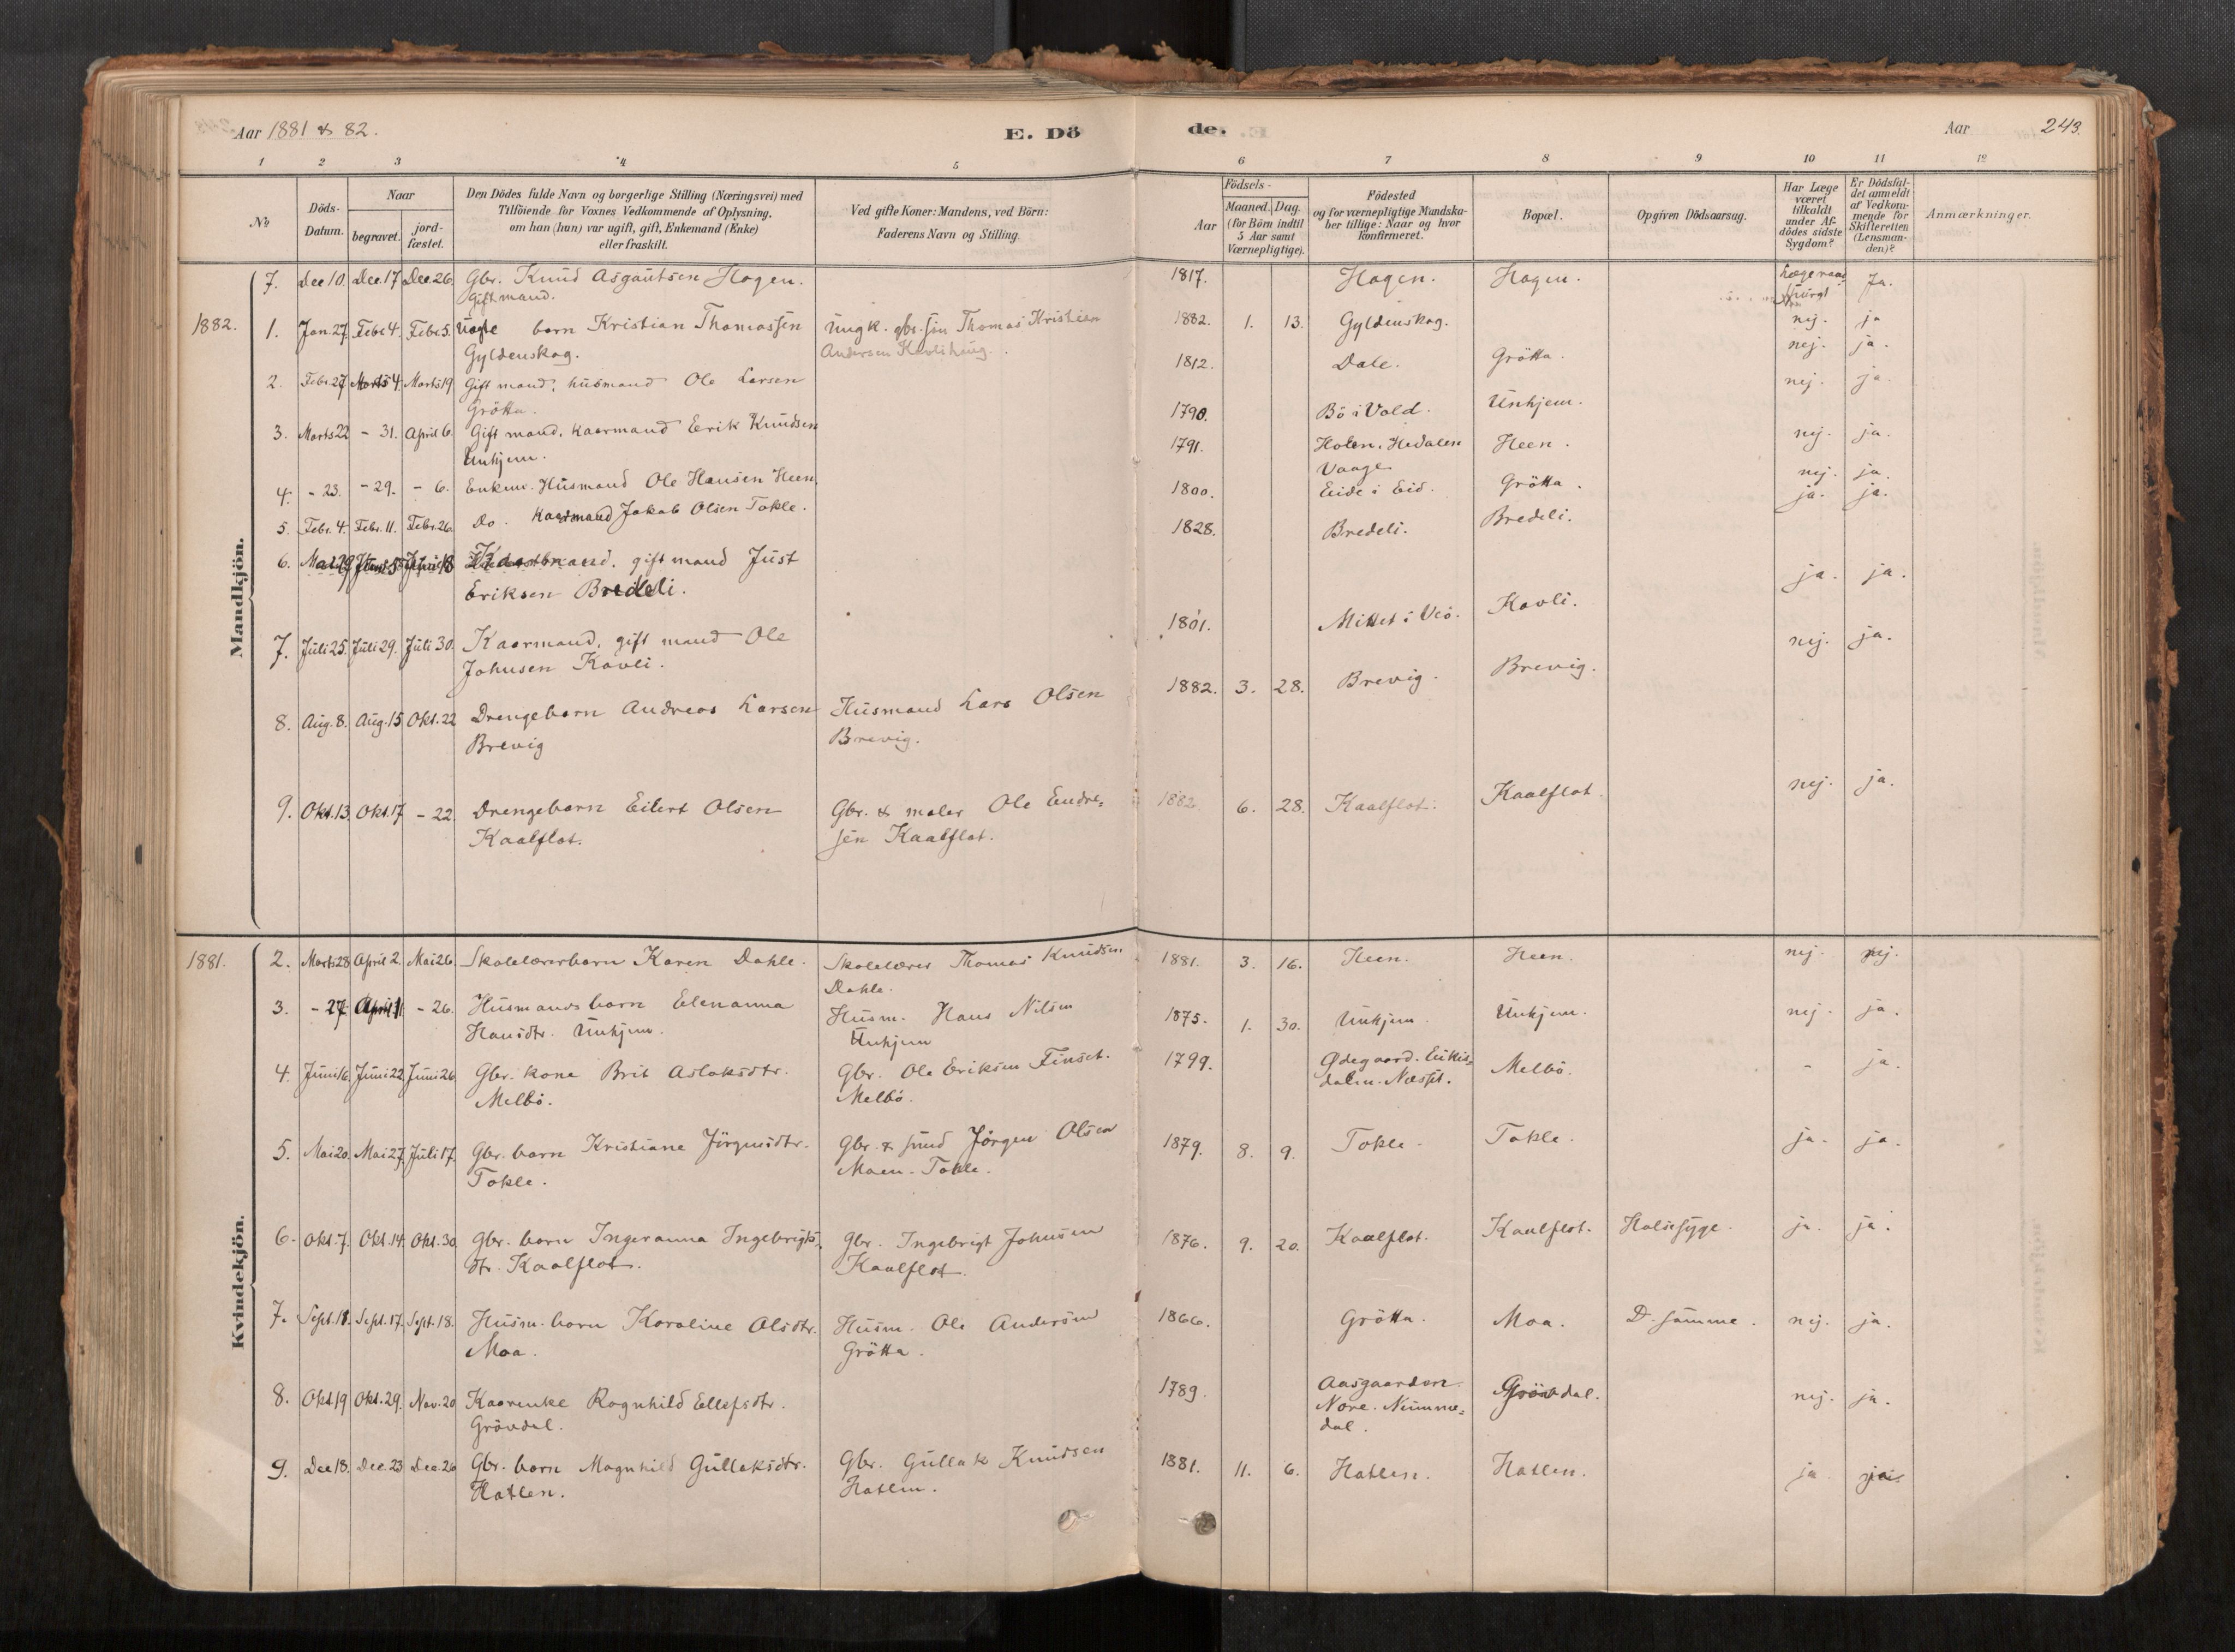 Aar 1881 & 82.
E. Döde.
Aar
243.
1 2 3 4 5 6 7 8 9 10 11 12
No
Döds-Datum.
Naar
begravet.
jord-fæstet.
Den Dödes fulde Navn og borgerlige Stilling (Næringsvei) med
Tilföiende for Voxnes Vedkommende af Oplysning,
om han (hun) var ugift, gift, Enkemand (Enke)
eller fraskilt.
Ved gifte Koner: Mandens, ved Börn:
Faderens Navn og Stilling.
Födsels-
Aar
Maaned. Dag.
(for Börn indtil
5 Aar samt
Værnepligtige).
Födested
og for værnepligtige Mandska-
ber tillige: Naar og hvor
konfirmeret.
Bopæl.
Opgiven Dödsaarsag.
Har Læge
været
tilkaldt
under Af-
dödes sidste
Sygdom?
Er Dödsfal-
det anmeldt
af Vedkom-
mende for
Skifteretten
(Lensman-
den)?
Anmærkninger.
Mandkjön.
7. Dec 10. Dec. 17 Dec. 26. Gbr. Knud Asgautsen Hagen. 1817. Hagen. Hagen. Ja.
Giftmand.
1882. 1. Jan. 27. Febr 4. Febr 5. Uægte barn Kristian Thomassen Ungk. gbr. søn Thomas Kristian 1882. 1. 13. Gyldenskag. nej. ja
Gyldenskag. Andersen
2. Febr 27 Marts 4. Marts 19 Gift mand, husmand Ole Larsen 1812. Dale. Grötta. nej. ja.
Grötta.
3. Marts 22 - 31. April 6. Gift mand, kaarmand Erik Knudsen 1790. Bö i Vold. Unhjem. nej. ja.
Unhjem.
4. - 23. - 29. - 6. Enkem. Husmand Ole Hansen Heen. 1791. Holen. Hedalen Heen. nej. ja.
Vaage.
5. Febr. 4. Febr. 11. Febr. 26. Do. Kaarmand Jakob Olsen Tokle. 1800. Eide i Eid. Grötta. nej. ja.
6. Kaarmand, gift mand Just 1828. Bredeli. Bredeli. ja. ja.
Eriksen Bredeli.
7. Juli 25. Juli 29. Juli 30. Kaarmand, gift mand Ole 1801. Mittet i Veö. Kavli. ja. ja.
Johnsen Kavli.
8. Aug. 8. Aug. 15 Okt. 22 Drengebarn Andreas Larsen Husmand Lars Olsen 1882. 3. 28. Brevig. Brevig. nej. ja.
Brevig Brevig.
9. Okt. 13. Okt. 17 - 22. Drengebarn Eilert Olsen Gbr. & maler Ole Endre- 1882. 6. 28. Kaalflot. Kaalflot. nej. ja.
Kaalflot. sen Kaalflot.
Kvindekjön.
1881. 2. Marts 28 April 2. Mai 26. Skolelærerbarn Karen Dahle. Skolelærer Thomas Knudsen 1881. 3. 16. Heen. Heen. nej. nej.
Dahle.
3. - 27 April 1 - 26. Husmandsbarn Elenanna Husm. Hans Nilsen 1875. 1. 30. Unhjem. Unhjem. nej. ja.
Hansdtr. Unhjem. Unhjem
4. Juni 16. Juni 22. Juni 26. Gbr. kone Brit Aslaksdtr. Gbr. Ole Eriksen Finset. 1799. Ødegaard. Eikis- Melbö. - ja.
Melbö. Melbö. dalen. Næsset.
5. Mai 20. Mai 27. Juli 17. Gbr. barn Kristiane Jörgensdtr. Gbr. & smed Jörgen Olsen 1879. 8. 9. Tokle. Tokle. ja. ja.
Tokle. Moen-Tokle.
6. Okt. 7. Okt. 14. Okt. 30. Gbr. barn Ingeranna Ingebrigts- Gbr. Ingebrigt Johnsen 1876. 9. 20. Kaalflot. Kaalflot. Halssyge. ja. ja.
dtr. Kaalflot. Kaalflot.
7. Sept. 18. Sept. 17. Sept. 18. Husm. barn Karoline Olsdtr. Husm. Ole Andersen 1866. Grötta. Moa. D. samme. nej. ja.
Moa. Grötta.
8. Okt. 19 Okt. 29. Nov. 20 Kaarenke Ragnhild Ellefsdtr. 1789. Aasgaarden. Grövdal. nej. ja.
Grövdal. Nore. Numme-
dal.
9. Dec 18. Dec. 23 Dec. 26 Gbr. barn Magnhild Gullaksdtr. Gbr. Gullak Knudsen 1881. 11. 6. Hatlen. Hatlen. ja ja.
Hatlen. Hatlen.